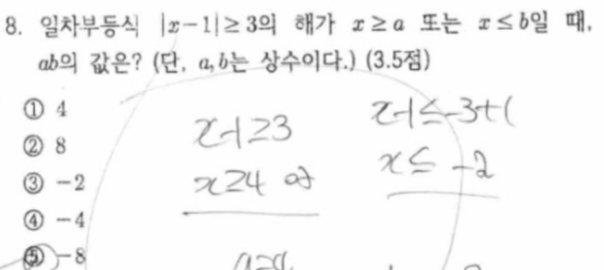 8. 일차부등식 |x-1|≥3의 해가 x≥a 또는 x≤b일 때,
ab의 값은? (단, a, b는 상수이다.) (3.5점)
① 4
② 8
③ -2
④ -4
⑤ -8
x-1≥3
x≥4
x-1≤-3+1
x≤-2